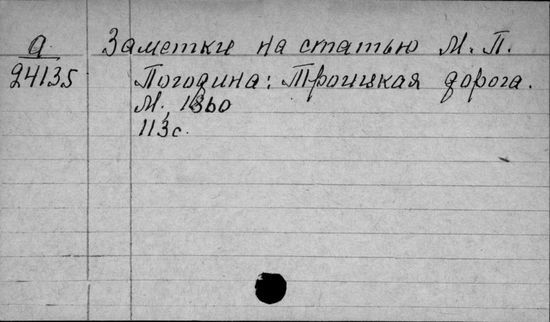 а Заметки на статью М. П.
24135 Погодина: Троицкая дорога.
М, 1860
113с.